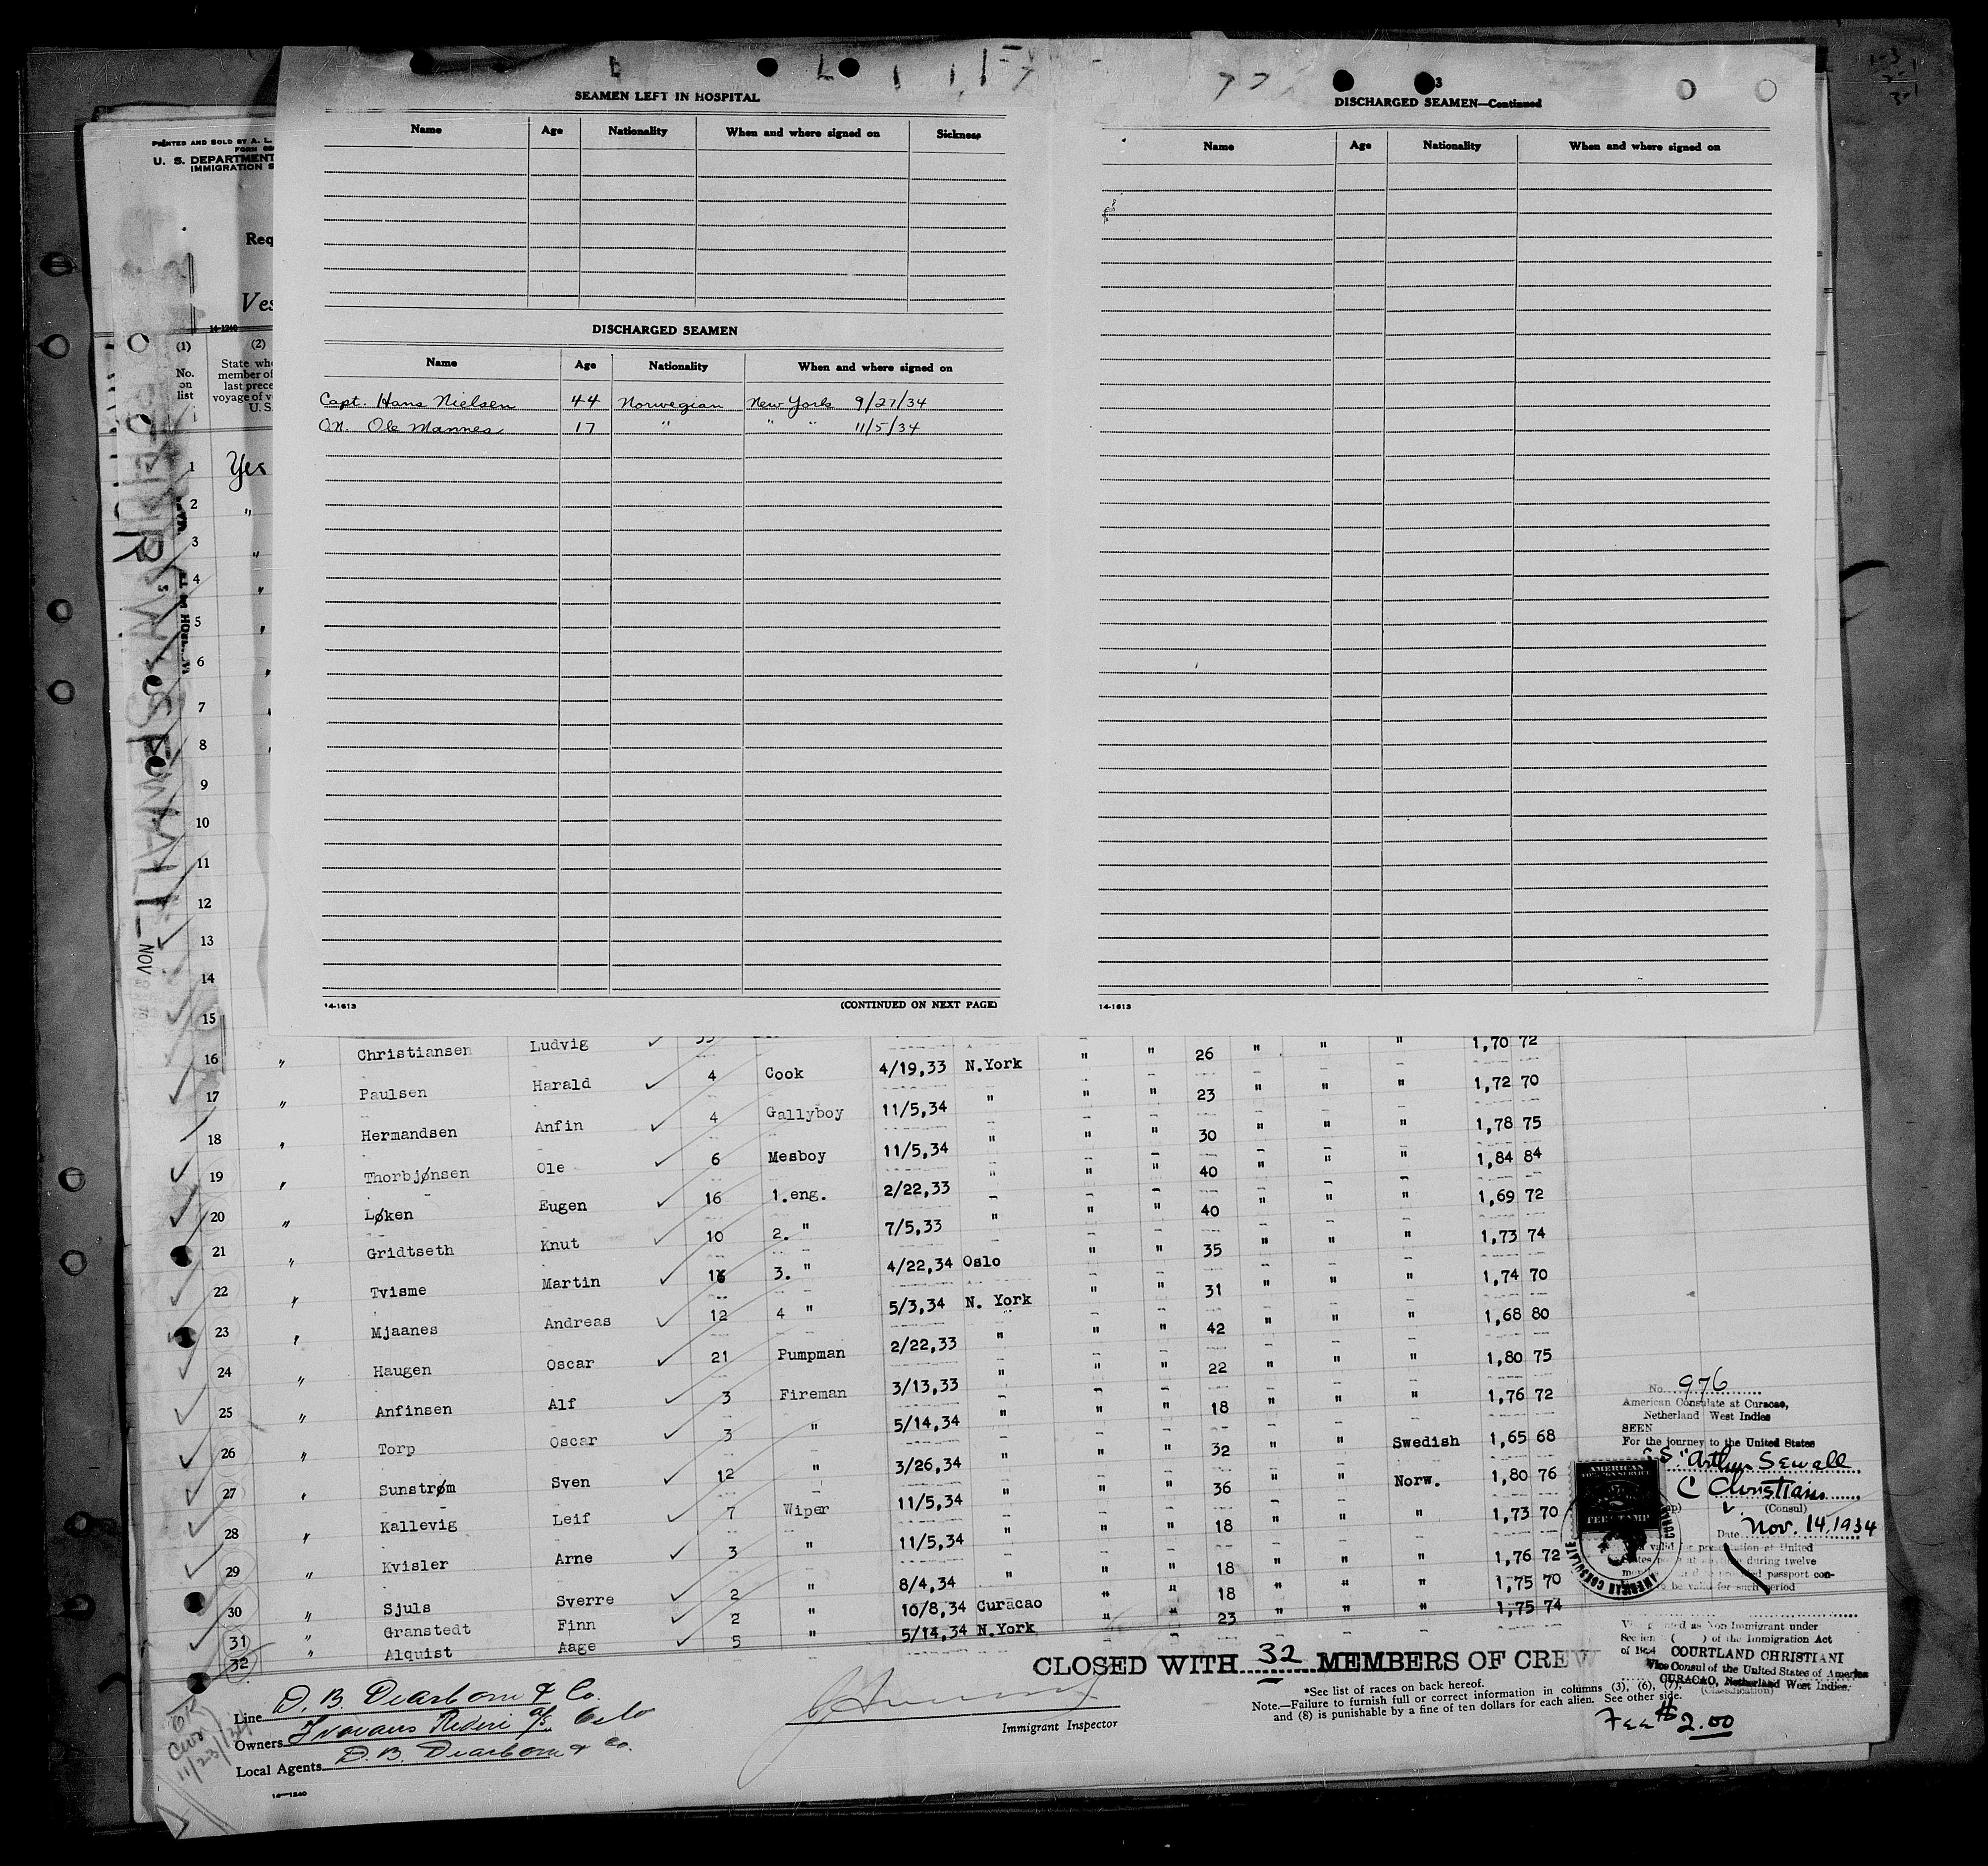 SEAMEN LEFT IN HOSPITAL
Name Age Nationality When and where signed on Sickness
DISCHARGED SEAMEN
Name Age Nationality When and where signed on
Capt. Hans Nielsen 44 Norwegian New York 9/27/34
O.N. Ole Mannes 17 " " " 11/5/34
14-1613 (CONTINUED ON NEXT PAGE)
3
DISCHARGED SEAMEN—Continued
Name Age Nationality When and where signed on
14-1613
PRINTED AND SOLD BY A. L.
U. S. DEPARTMENT
IMMIGRATION S
Req
Ves
14-1240
(1) (2)
No. on list
State whe
member of
last prece
voyage of v
U. S.
1 Yes
2 "
3 "
4 "
5 "
6 "
7 "
8
9
10
11
12
13
14
15
16 " Christiansen Ludvig
17 " Paulsen Harald 4 Cook 4/19,33 N.York " " 26 " " " 1,70 72
18 " Hermandsen Anfin 4 Gallyboy 11/5,34 " " " 23 " " " 1,72 70
19 " Thorbjønsen Ole 6 Mesboy 11/5,34 " " " 30 " " " 1,78 75
20 " Løken Eugen 16 1.eng. 2/22,33 " " " 40 " " " 1,84 84
21 " Gridtseth Knut 10 2. " 7/5,33 " " " 40 " " " 1,69 72
22 " Tvisme Martin 3. " 4/22,34 Oslo " " 35 " " " 1,73 74
23 " Mjaanes Andreas 12 4 " 5/3,34 N. York " " 31 " " " 1,74 70
24 " Haugen Oscar 21 Pumpman 2/22,33 " " " 42 " " " 1,68 80
25 " Anfinsen Alf 3 Fireman 3/13,33 " " " 22 " " " 1,80 75
26 " Torp Oscar 3 " 5/14,34 " " " 18 " " " 1,76 72
27 " Sunstrøm Sven 12 " 3/26,34 " " " 32 " " Swedish 1,65 68
28 " Kallevig Leif 7 Wiper 11/5,34 " " " 36 " " Norw. 1,80 76
29 " Kvisler Arne 3 " 11/5,34 " " " 18 " " " 1,73 70
30 " Sjuls Sverre 2 " 8/4,34 " " " 18 " " " 1,76 72
31 " Granstedt Finn 2 " 10/8,34 Curacao " " 18 " " " 1,75 70
32 " Alquist Aage 5 " 5/14,34 N.York " " 23 " " " 1,75 74
CLOSED WITH 32 MEMBERS OF CREW
Line D. B. Dearborn & Co.
Owners Rederi A/S Oslo
Local Agents D. B. Dearborn & Co.
14—1240
Immigrant Inspector
*See list of races on back hereof.
Note.—Failure to furnish full or correct information in columns (3), (6), (7),
and (8) is punishable by a fine of ten dollars for each alien. See other side.
No. 976
American Consulate at Curacao,
Netherland West Indies
SEEN
For the journey to the United States
S.S. "Arthur Sewall
C Christiani
(Consul)
Date Nov. 14, 1934
AMERICAN
FEE STAMP
AMERICAN CONSULATE
of the Immigration Act
COURTLAND CHRISTIANI
Vice Consul of the United States of America
CURACAO, Netherland West Indies.
(Classification)
Fee $2.00
OK
11/23/34
NOV